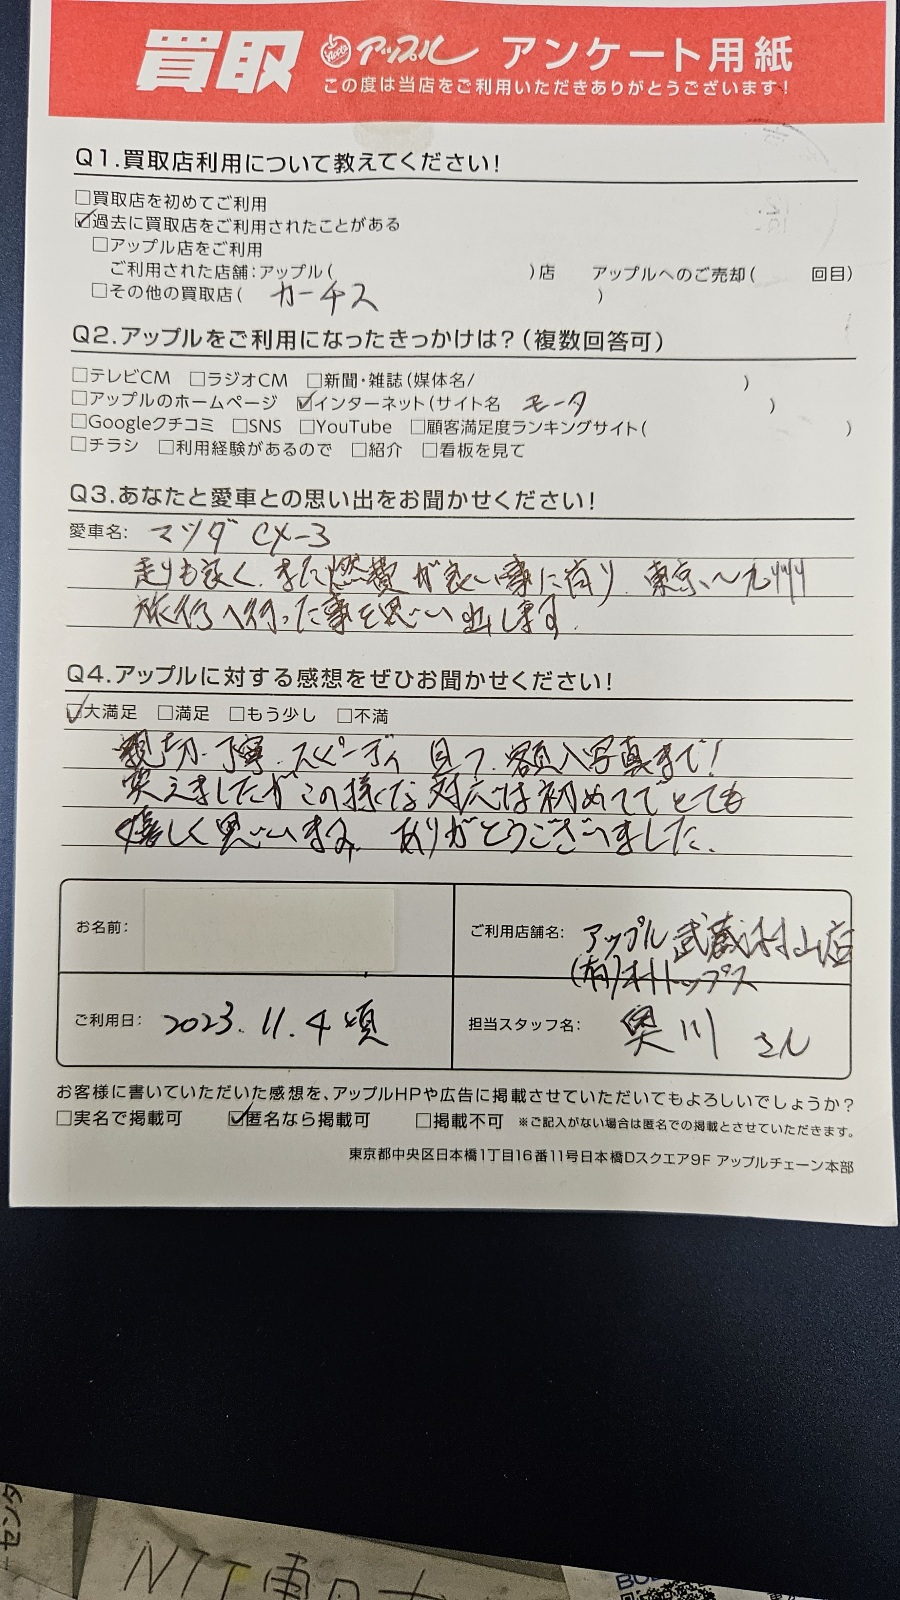 買取 アップル アンケート用紙
この度は当店をご利用いただきありがとうございます!
Q1.買取店利用について教えてください!
□買取店を初めてご利用
☑過去に買取店をご利用されたことがある
□アップル店をご利用
ご利用された店舗:アップル( )店 アップルへのご売却( 回目)
□その他の買取店( カーチス )
Q2.アップルをご利用になったきっかけは?(複数回答可)
□テレビCM □ラジオCM □新聞・雑誌(媒体名/ )
□アップルのホームページ ☑インターネット(サイト名 モータ )
□Googleクチコミ □SNS □YouTube □顧客満足度ランキングサイト( )
□チラシ □利用経験があるので □紹介 □看板を見て
Q3.あなたと愛車との思い出をお聞かせください!
愛車名: マツダ CX-3
走りも良く、また燃費が良い事に有り、東京〜九州
旅行へ行った事を思い出します。
Q4.アップルに対する感想をぜひお聞かせください!
☑大満足 □満足 □もう少し □不満
親切、丁寧、スピーディ 且つ、額入写真まで!
笑えましたがこの様な対応は初めてでとても
嬉しく思います。ありがとうございました。
お名前:
ご利用店舗名: アップル武蔵村山店
(有)オートトップス
ご利用日: 2023.11.4頃
担当スタッフ名: 奥川 さん
お客様に書いていただいた感想を、アップルHPや広告に掲載させていただいてもよろしいでしょうか?
□実名で掲載可 ☑匿名なら掲載可 □掲載不可 ※ご記入がない場合は匿名での掲載とさせていただきます。
東京都中央区日本橋1丁目16番11号日本橋Dスクエア9F アップルチェーン本部
NTT東日本